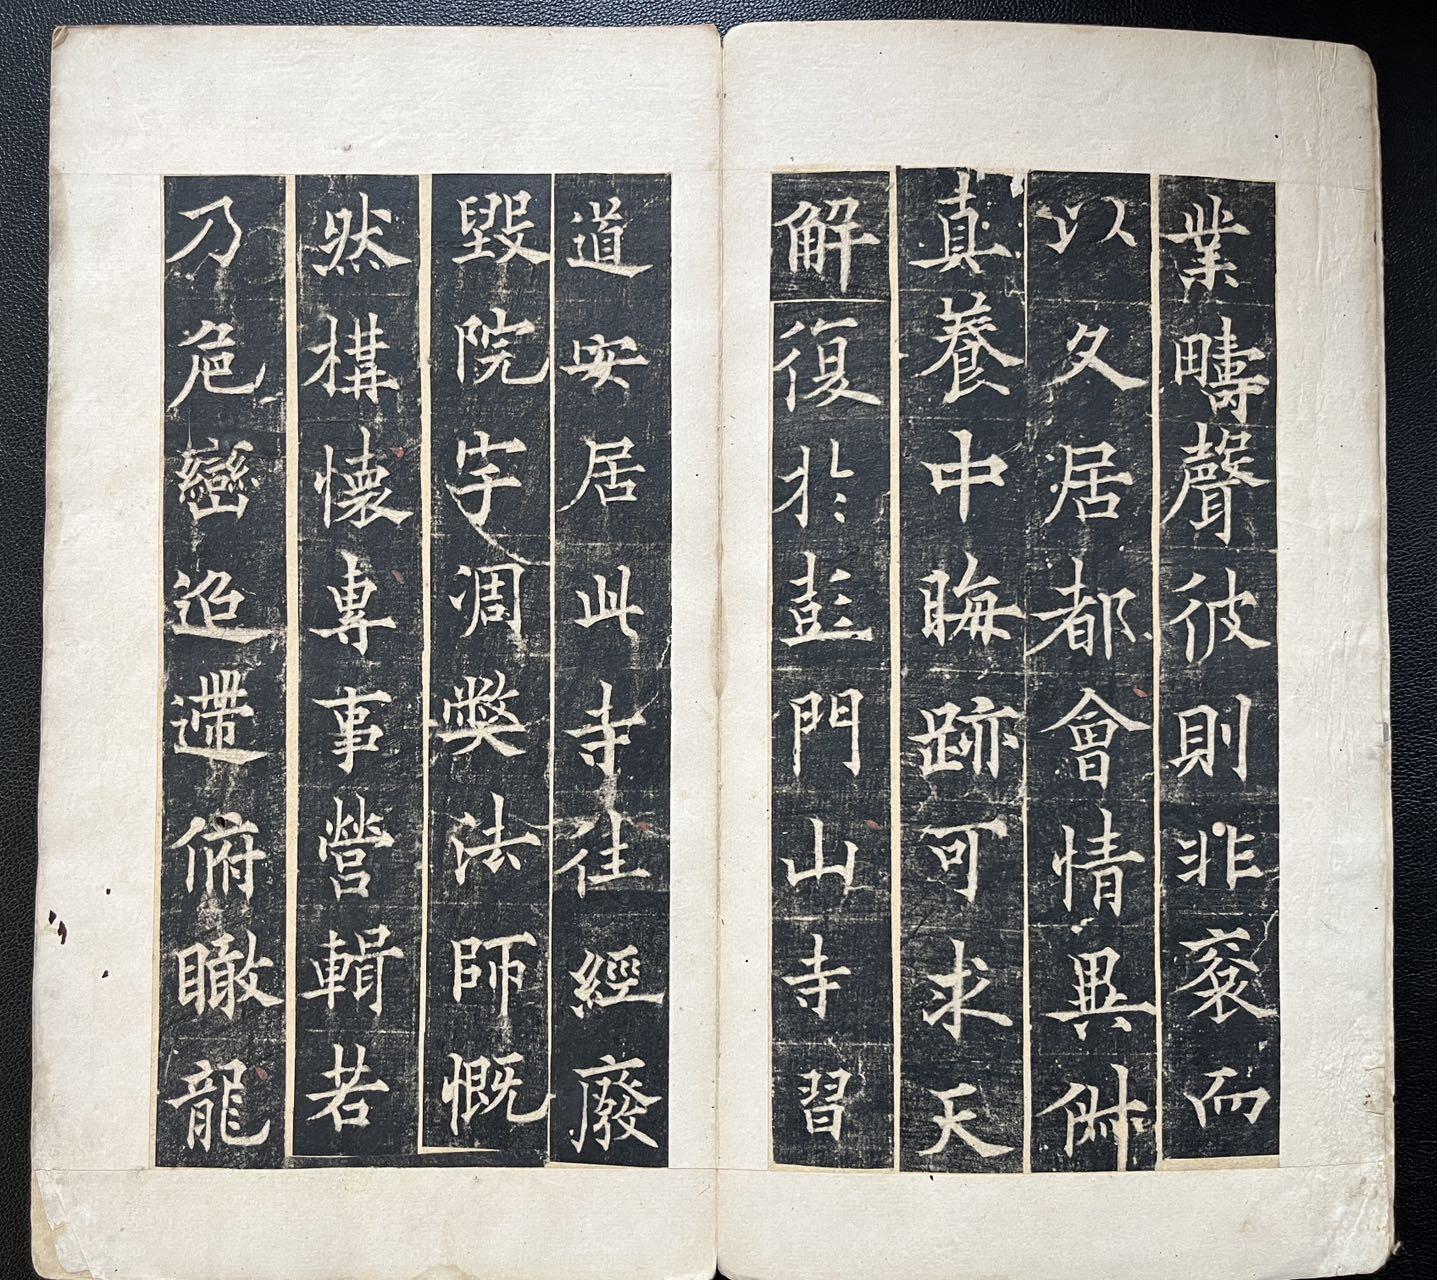 業疇聲彼則非褒而
以久居都會情異𠈉
真養中晦跡可求天
解復於彭門山寺習
道安居此寺往經廢
毀院宇凋弊法師慨
然構懷專事營緝若
乃危巒迢遰俯瞰龍